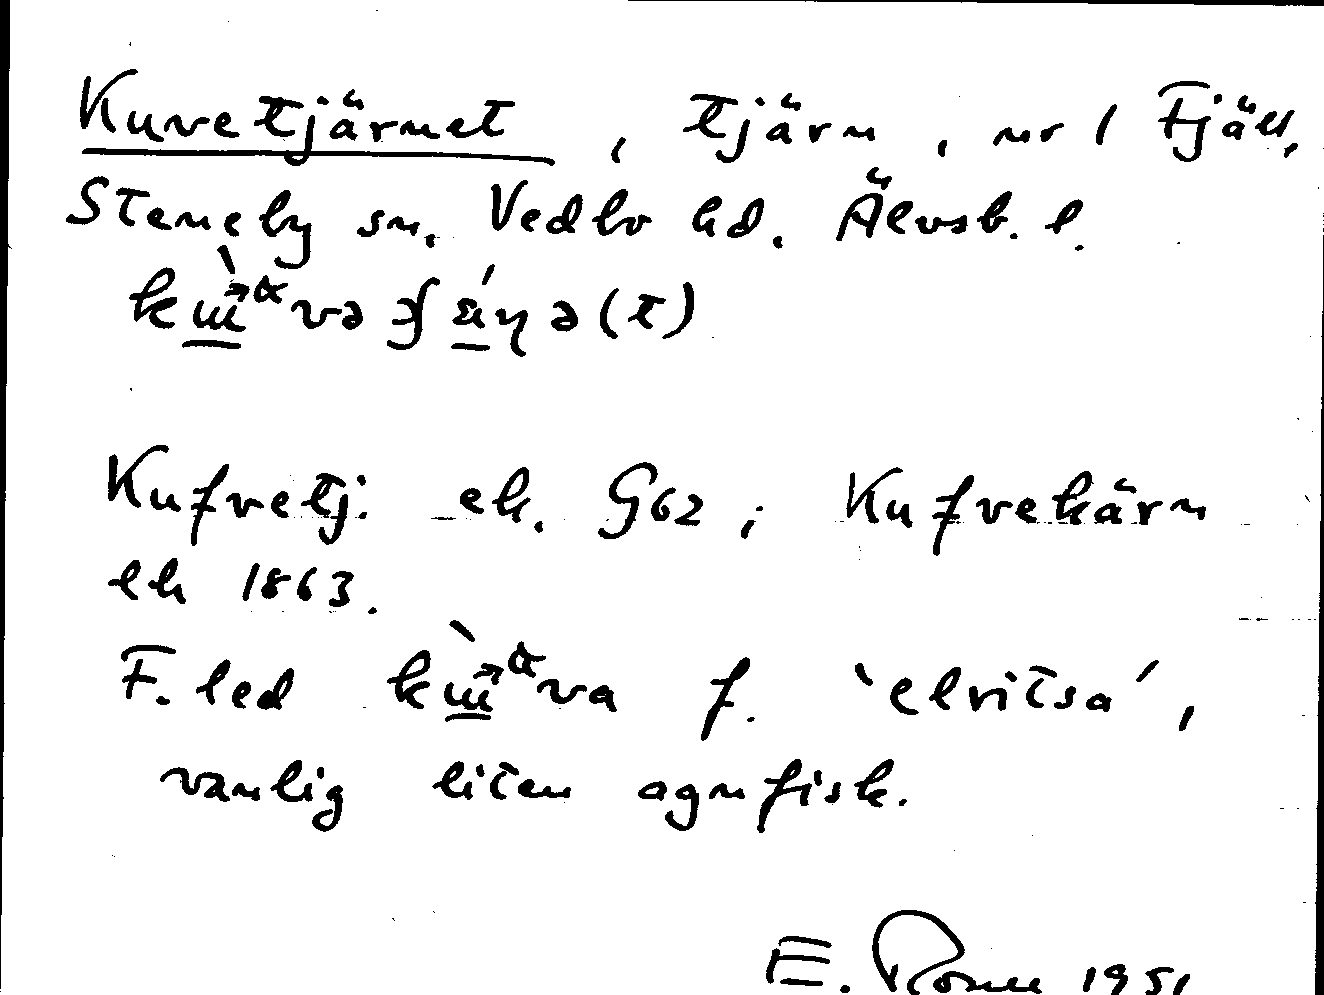 Kuvetjärnet, tjärn, nr 1 Fjäll,
Steneby sn. Vedbo hd. Älvsb. l.
Kufvetj. ek. G62; Kufvekärn
ek 1863.
F. led f. 'elritsa',
vanlig liten agnfisk.
E. 1951